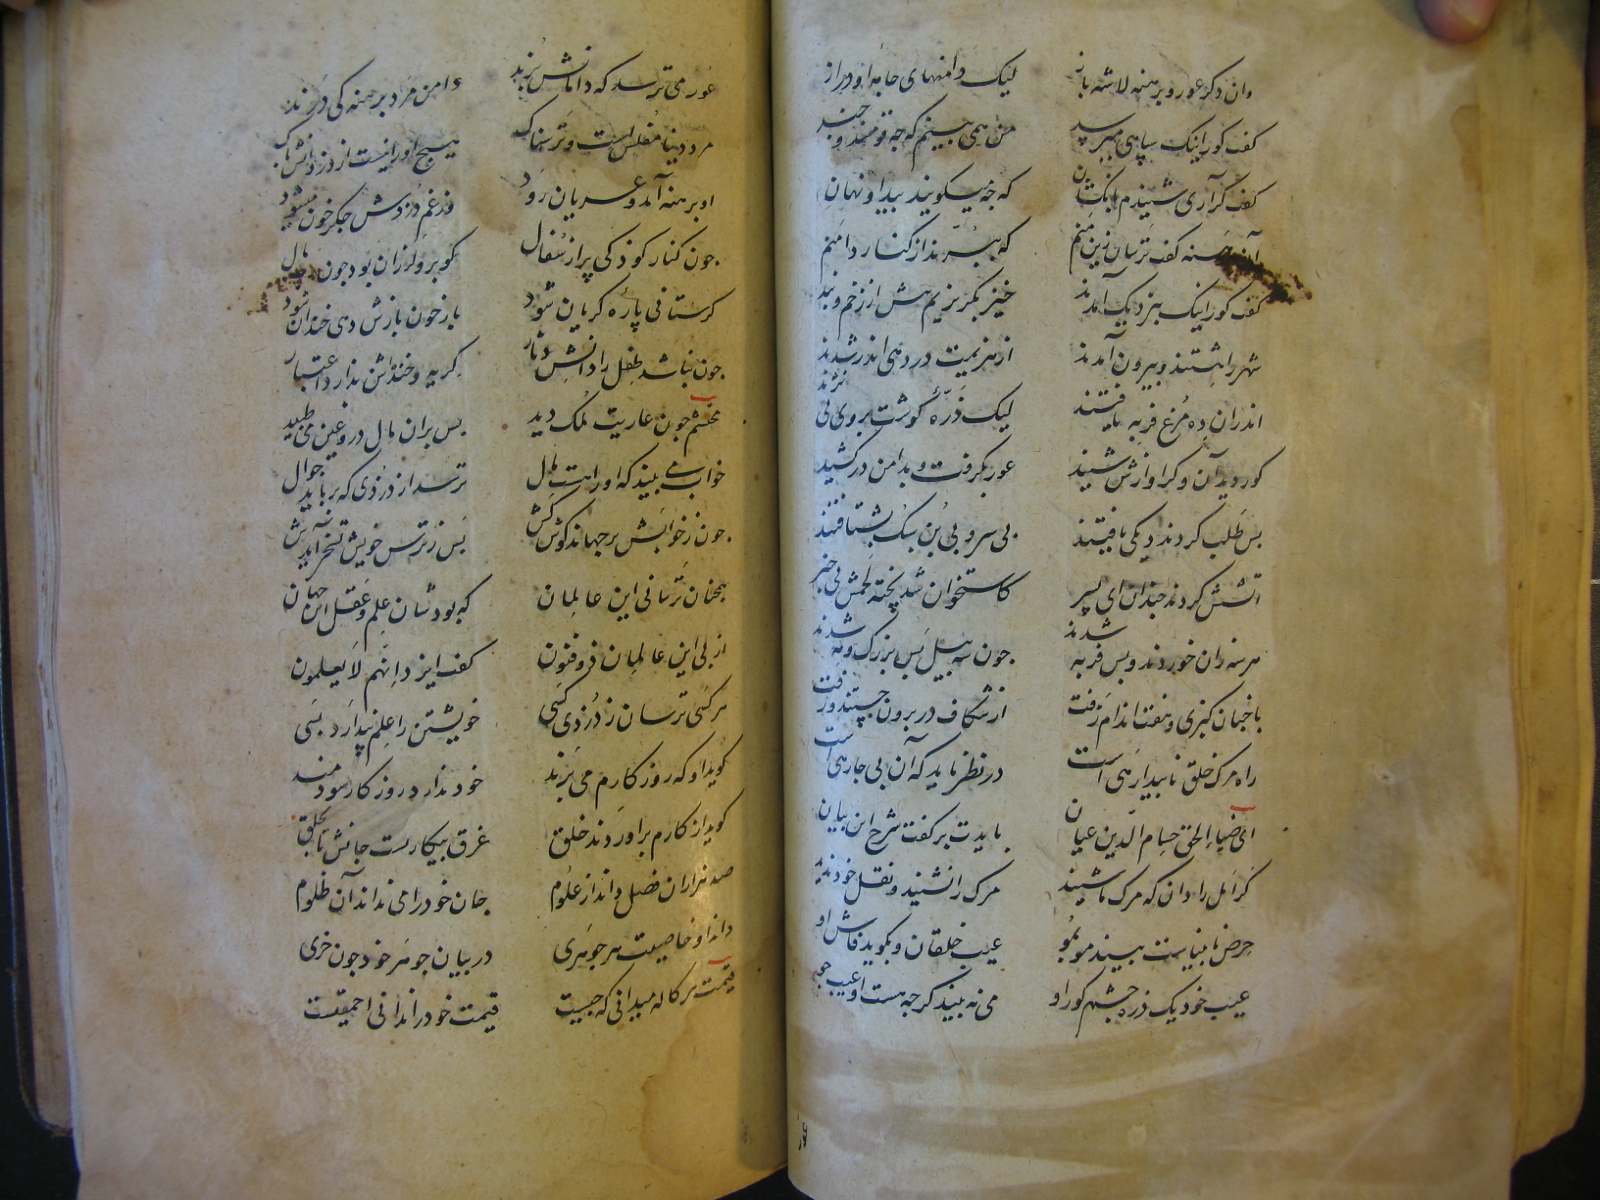 وان دکر عور و برهنه لاشه باز لیک دامنهای جامه او دراز
کفت کور اینک سپاهی میرسد من همی بینم که جه قومند و جند
کفت کر آری شنیدم بانکشان که جه میکویند پیدا و نهان
آن برهنه کفت ترسان زین منم که ببرند از کنار دامنم
کفت کور اینک بنزدیک آمدند خیز بکریزیم پیش از زخم و بند
شهر را هشتند و بیرون آمدند از هزیمت در دهی اندر شدند
اندران ده مرغ فربه یافتند لیک ذرّهٔ کوشت بر وی نی نژند
کور دید آن و کر اوازش شنید عور بکرفت و بدامن در کشید
بس طلب کردند دیکی یافتند بی سر و بی بن سبک بشتافتند
آتشش کردند جندان ای پسر کاستخوان شد پخته لحمش بی خبر
هر سه زان خوردند و بس فربه شدند جون سه پیل بس بزرک و مه شدند
با جنان کبزی و هفت اندام زفت از شکاف در برون جستند و رفت
راه مرک خلق ناپیدا رهی است در نظر ناید که آن بی جا رهی است
ای ضیاء الحق حسام الدین عیان بایدت بر کفت شرح این بیان
کر امل را دان که مرک ما شنید مرک خود نشنید و نقل خود ندید
حرص نابیناست بیند مو بمو عیب خلقان و بکوید فاش او
عیب خود یک ذره جشم کور او می نه بیند کرجه هست او عیب جو
عور
عور می ترسد که دامانش برند دامن مرد برهنه کی درند
مرد دنیا مفلس است و ترسناک هیج او را نیست از دزدانش باک
او برهنه آمد و عریان رود وز غم دزدش جکر خون میشود
جون کنار کودکی پر از سفال کو بر و لرزان بود جون رب مال
کر ستانی پاره کریان شود باز جون بازش دهی خندان شود
جون نباشد طفل را دانش دثار کریه و خندش ندارد اعتبار
محتشم جون عاریت ملک دید بس بران مال دروغین می طپید
خواب می بیند که او راست مال ترسد از دزدی که برباید جوال
جون ز خوابش بر جهاند کوش کش بس ز ترس خویش تسخر آیدش
همجنان ترسانی این عالمان که بودشان علم و عقل این جهان
از بی این عالمان ذو فنون کفت ایزد انهم لا یعلمون
هر کسی ترسان ز دزدی کسی خویشتن را علم پندارد بسی
کوید او که روزکارم می برند خود ندارد روزکار سودمند
کوید از کارم براوردند خلق غرق بیکاریست جانش تا بحلق
صد هزاران فضل داند از علوم جان خود را می نداند آن ظلوم
داند او خاصیت هر جوهری در بیان جوهر خود جون خری
قیمت هر کاله میدانی که جیست قیمت خود را ندانی احمقیست